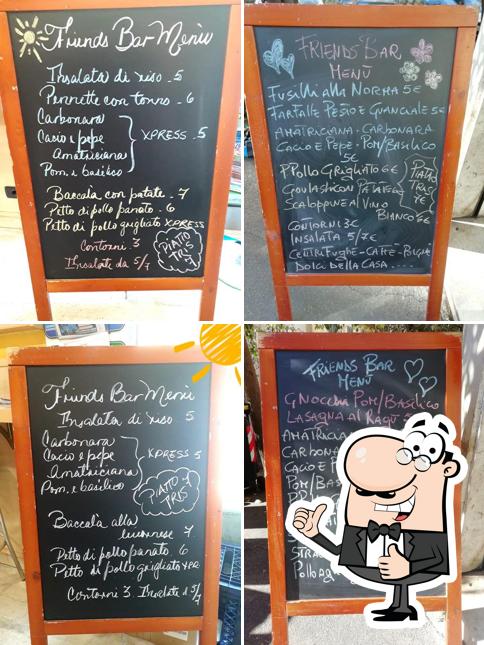 Friends Bar Menù
Insalata di riso . 5
Pennette con tonno . 6
Carbonara
Cacio e pepe XPRESS . 5
Amatriciana
Pom. e basilico
Baccala con patate . 7
Petto di pollo panato . 6
Petto di pollo grigliato XPRESS
Contorni 3
Insalate da 5/7
PIATTO
TRIS
7
FRIENDS BAR
MENÙ
FUSILLI alla NORMA 5€
FARFALLE PESTO E GUANCIALE 5€
AMATRICIANA - CARBONARA
CACIO E PEPE - POM/BASILICO
5€
POLLO GRIGLIATO 6€
GOULASH CON PATATE
SCALOPPINE AL VINO
BIANCO 6€
PIATTO
TRIS
7€
CONTORNI 3€
INSALATA 5/7€
CENTRIFUGHE - CAFFÈ
DOLCI DELLA CASA ....
Friends Bar Menù
Insalata di riso 5
Carbonara
Cacio e pepe XPRESS 5
Amatriciana
Pom. e basilico
PIATTO 7
TRIS
Baccala alla
livornese 7
Petto di pollo panato . 6
Petto di pollo grigliato
Contorni 3 Insalate d 5/7
FRIENDS BAR
MENÙ
GNOCCHI POM/BASILICO
LASAGNA AL RAGÙ
AMATRICIA
CARBONA
CACIO E P
POM/BAS
STRA